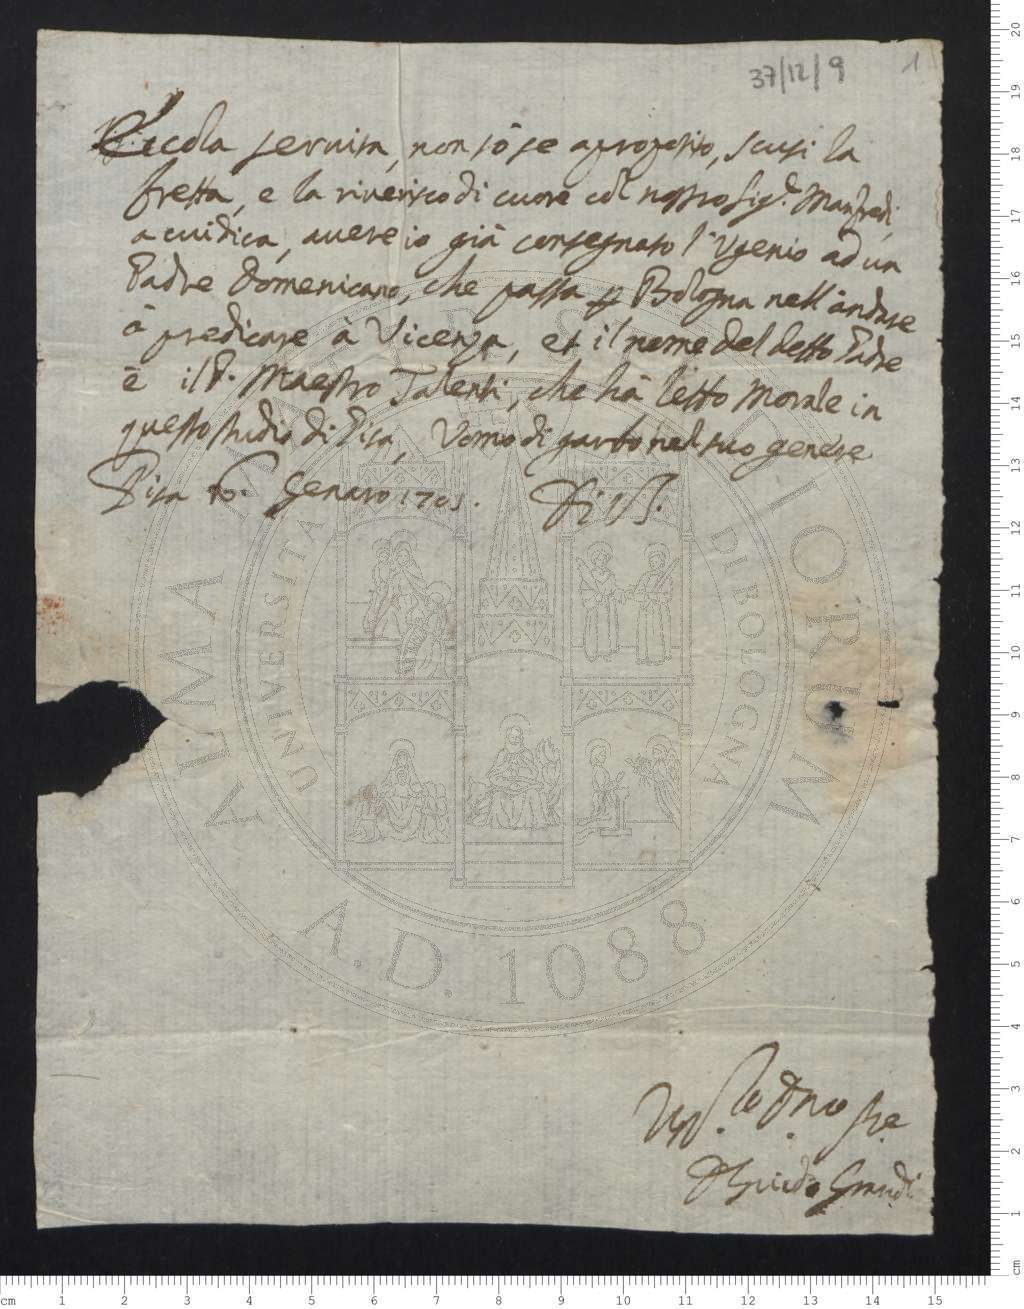 37/12/9
1
Eccola servita, non sò se à proposito, scusi la
fretta, e la riverisco di cuore col nostro Sig.r Manfredi
a cui dica, avere io già consegnato l'Vgenio ad un
Padre Domenicano, che passa p Bologna nell'andare
à predicare à Vicenza, et il nome del detto Padre
è il P. Maestro Talenti, che hà letto Morale in
questo studio di Pisa, Vomo di garbo nel suo genere
Pisa Genaro 1705. Di VS.
D Guido Grandi
ALMA MATER STUDIORUM
UNIVERSITÀ DI BOLOGNA
A.D. 1088